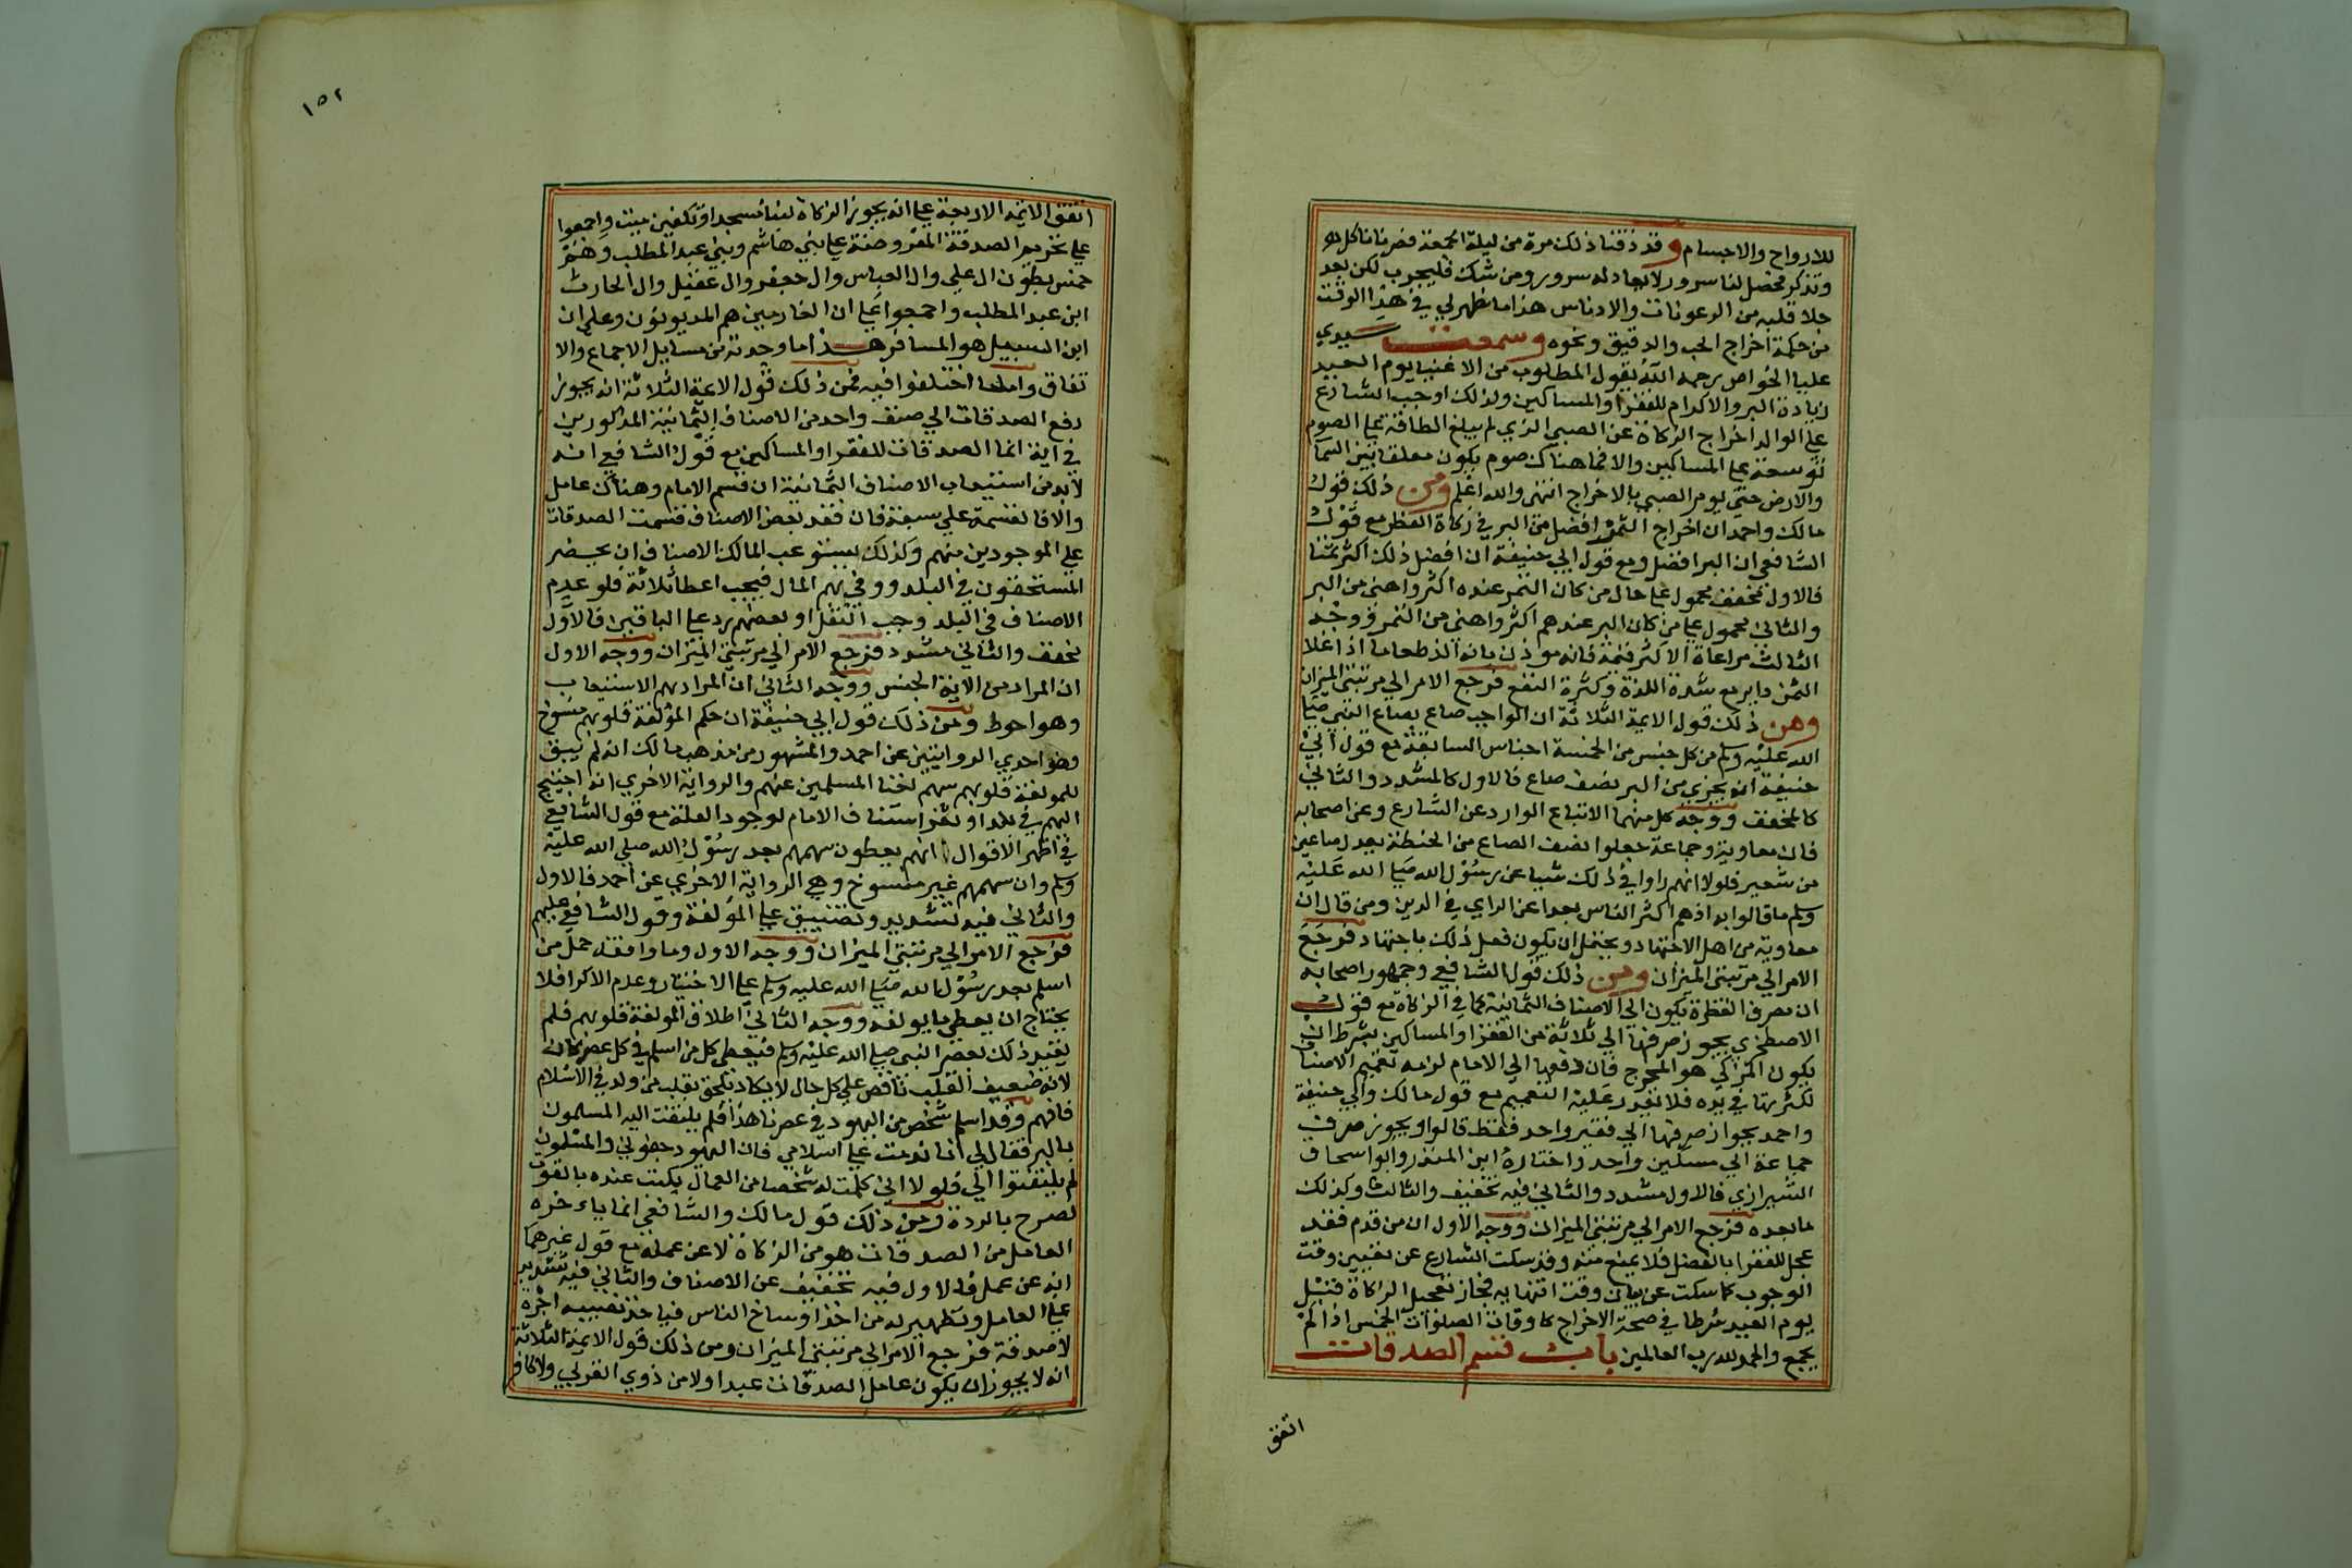 للارواح والاجسام وقد ذقنا ذلك مرة من ليلة الجمعة فصرنا ناكل
وتذكر فحصل لنا سرور لا يعادله سرور ومن شك فليجرب لكن بعد
جلا قلبه من الرعونات والادناس هذا ما ظهر لي في هذا الوقت
من حكمة اخراج الحب والدقيق ونحوه وسمعت سيدي
عليا الخواص رحمه الله يقول المطلوب من الاغنيا يوم العيد
زيادة البر والاكرام للفقرا والمساكين ولذلك اوجب الشارع
علي الوالد اخراج الزكاة عن الصبي الذي لم يبلغ الطاقة علي الصوم
توسعة علي المساكين والا فما هناك صوم يكون معلقا بين السما
والارض حتي يومر الصبي بالاخراج انتهي والله اعلم ومن ذلك قول
مالك واحمد ان اخراج التمر افضل من البر في زكاة الفطر مع قول
الشافعي ان البر افضل ومع قول ابي حنيفة ان افضل ذلك اكثر ثمنا
فالاول مخفف محمول علي حال من كان التمر عنده اكثر واهنى من البر
والثاني محمول علي من كان البر عندهم اكثر واهني من التمر ووجه
الثالث مراعاة الاكثر قيمة فانه موذن بانه الذ طعاما اذا غلا
الثمن داير مع شدة اللذة وكثرة النفع فرجع الامر الي مرتبتي الميزان
ومن ذلك قول الايمة الثلاثة ان الواجب صاع بصاع النبي صلي
الله عليه وسلم من كل جنس من الخمسة اجناس السابقة مع قول ابي
حنيفة انه يجزي من البر نصف صاع فالاول كالمشدد والثاني
كالمخفف ووجه كل منهما الاتباع الوارد عن الشارع وعن اصحابه
فان معاوية وجماعة جعلوا نصف الصاع من الحنطة يعدل صاعين
من شعير فلولا انهم راوا في ذلك شيا عن رسول الله صلي الله عليه
وسلم ما قالوا به اذ هم اكثر الناس بعدا عن الراي في الدين ومن قال ان
معاوية من اهل الاجتهاد ويحتمل ان يكون فعل ذلك باجتهاد فرجع
الامر الي مرتبتي الميزان ومن ذلك قول الشافعي وجمهور اصحابه
ان مصرف الفطرة يكون الي الاصناف الثمانية كما في الزكاة مع قول
الاصطخري يجوز صرفها الي ثلاثة من الفقرا والمساكين بشرط ان
يكون المزكي هو المخرج فان دفعها الي الامام لزمه تعميم الاصناف
لكثرتها في يده فلا يتعذر عليه التعميم مع قول مالك وابي حنيفة
واحمد بجواز صرفها الي فقير واحد فقط قالوا ويجوز صرف
جماعة الي مسكين واحد واختاره ابن المنذر وابو اسحاق
الشيرازي فالاول مشدد والثاني فيه تخفيف والثالث وكذلك
ما بعده فرجع الامر الي مرتبتي الميزان ووجه الاول ان من قدم فقد
عجل للفقرا بالفضل فلا يمنع منه وقد سكت الشارع عن تعيين وقت
الوجوب كما سكت عن بيان وقت انتهايه فجاز تعجيل الزكاة قبل
يوم العيد شرطا في صحة الاخراج كاوقات الصلوات الخمس اذا لم
يجمع والحمد لله رب العالمين باب قسم الصدقات
اتفق
١٥٢
اتفق الايمة الاربعة علي انه يجوز الزكاة لبنا مسجد او تكفين ميت واجمعوا
علي تحريم الصدقة المفروضة علي بني هاشم وبني عبد المطلب وهم
خمس بطون ال علي وال العباس وال جعفر وال عقيل وال الحارث
ابن عبد المطلب واجمعوا علي ان الغارمين هم المديونون وعلي ان
ابن السبيل هو المسافر هذا ما وجدته من مسايل الاجماع والا
تفاق واما ما اختلفوا فيه فمن ذلك قول الايمة الثلاثة انه يجوز
دفع الصدقات الي صنف واحد من الاصناف الثمانية المذكورين
في اية انما الصدقات للفقرا والمساكين مع قول الشافعي انه
لابد من استيعاب الاصناف الثمانية ان قسم الامام وهناك عامل
والا فالقسمة علي سبعة فان فقد بعض الاصناف قسمت الصدقات
علي الموجودين منهم وكذلك يستوعب المالك الاصناف ان يحضر
المستحقون في البلد ووفي بهم المال فيجب اعطا ثلاثة فلو عدم
الاصناف في البلد وجب النقل او بعضهم رد علي الباقين فالاول
مخفف والثاني مشدد فرجع الامر الي مرتبتي الميزان ووجه الاول
ان المراد من الاية الجنس ووجه الثاني ان المراد بهم الاستيعاب
وهو احوط ومن ذلك قول ابي حنيفة ان حكم المؤلفة قلوبهم منسوخ
وهو احدي الروايتين عن احمد والمشهور من مذهب مالك انه لم يبق
للمولفة قلوبهم سهم لغنا المسلمين عنهم والرواية الاخري انه اجتيج
اليهم في بلد او ثغر استناف الامام لوجود العلة مع قول الشافعي
في اظهر الاقوال انهم يعطون سهمهم بعد رسول الله صلي الله عليه
وسلم وان سهمهم غير منسوخ وهي الرواية الاخري عن احمد فالاول
والثاني فيه تشديد وتضييق علي المؤلفة وقول الشافعي عليهم
فرجع الامر الي مرتبتي الميزان ووجه الاول وما وافقه حمل من
اسلم بعد رسول الله صلي الله عليه وسلم علي الاختيار وعدم الاكراه فلا
يحتاج ان يعطي ما يولفه ووجه الثاني اطلاق المولفة قلوبهم فلم
يقيد ذلك بعصر النبي صلي الله عليه وسلم فيعطي كل من اسلم في كل عصر كان
لانه ضعيف القلب ناقص علي كل حال لا يكاد يلحق بقلب من ولد في الاسلام
فافهم وقد اسلم شخص من اليهود في عصرنا هذا فلم يلتفت اليه المسلمون
بالبر فقال لي انا ندمت علي اسلامي فان اليهود جفوني والمسلمون
لم يلتفتوا الي فلولا اني كلمت له شخصا من العمال يكتب عنده بالقوت
لصرح بالردة ومن ذلك قول مالك والشافعي انما ياءخذه
العامل من الصدقات هو من الزكاة لا عن عمله مع قول غيرهما
انه عن عمل فالاول فيه تخفيف عن الاصناف والثاني فيه تشديد
علي العامل وتطهير له من اخذ اوساخ الناس فياخذ نصيبه اجرة
لا صدقة فرجع الامر الي مرتبتي الميزان ومن ذلك قول الايمة الثلاثة
انه لا يجوز ان يكون عامل الصدقات عبدا ولا من ذوي القربي ولا كافر